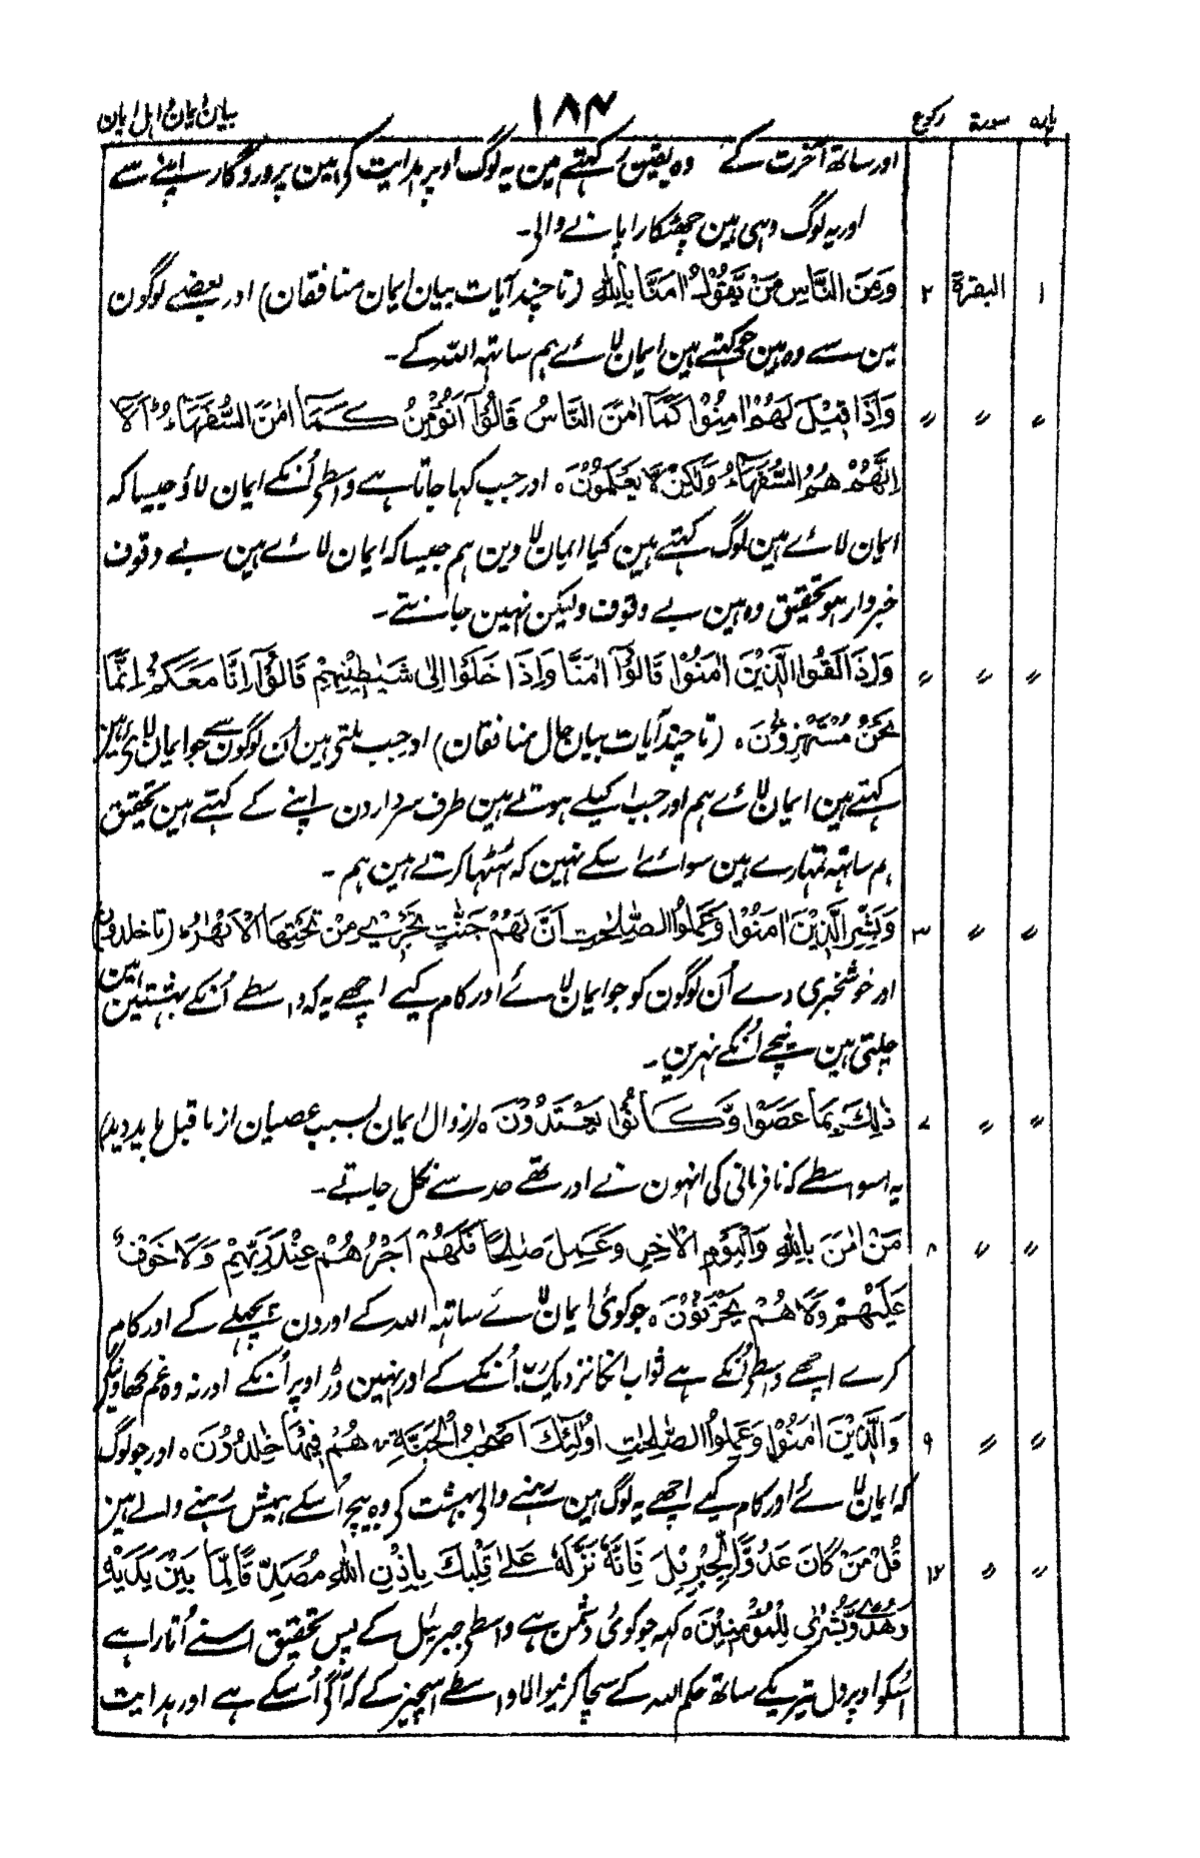 پارہ سورۃ رکوع ۱۸۴ بیان ایمان و اہل ایمان
اور ساتھ آخرت کے وہ یقین رکہتے ہین یہ لوگ اوپر ہدایت کی ہین پروردگار اپنے سے
اور یہ لوگ وہی ہین چھٹکارا پانے والی۔
۱ البقرۃ ۲ وَمِنَ النَّاسِ مَنْ يَّقُوْلُ اٰمَنَّا بِاللّٰهِ (تا چند آیات بیان ایمان منافقان) اور بعضے لوگون
مین سے وہ ہین جو کہتے ہین ایمان لائے ہم ساتہہ اللہ کے۔
〃 〃 〃 وَاِذَا قِيْلَ لَهُمْ اٰمِنُوْا كَمَآ اٰمَنَ النَّاسُ قَالُوْٓا اَنُؤْمِنُ كَمَآ اٰمَنَ السُّفَهَآءُ ؕ اَلَآ
اِنَّهُمْ هُمُ السُّفَهَآءُ وَلٰكِنْ لَّا يَعْلَمُوْنَ ہ اور جب کہا جاتا ہے واسطے اُنکے ایمان لاؤ جیسا کہ
ایمان لائے ہین لوگ کہتے ہین کیا ایمان لاوین ہم جیسا کہ ایمان لائے ہین بے وقوف
خبردار ہو تحقیق وہ ہین بے وقوف ولیکن نہین جانتے۔
〃 〃 〃 وَاِذَا لَقُوا الَّذِيْنَ اٰمَنُوْا قَالُوْٓا اٰمَنَّا وَاِذَا خَلَوْا اِلٰى شَيٰطِيْنِهِمْ قَالُوْٓا اِنَّا مَعَكُمْ اِنَّمَا
نَحْنُ مُسْتَهْزِءُوْنَ ہ (تا چند آیات بیان حال منافقان) اور جب ملتی ہین اُن لوگون سے جو ایمان لائے ہین
کہتے ہین ایمان لائے ہم اور جب اکیلے ہوتے ہین طرف سردارون اپنے کے کہتے ہین تحقیق
ہم ساتہہ تمہارے ہین سوائے اسکے نہین کہ ٹہٹہا کرتے ہین ہم۔
〃 〃 ۳ وَبَشِّرِ الَّذِيْنَ اٰمَنُوْا وَعَمِلُوا الصّٰلِحٰتِ اَنَّ لَهُمْ جَنّٰتٍ تَجْرِيْ مِنْ تَحْتِهَا الْاَنْهٰرُ ہ (تا خلدون)
اور خوشخبری دے اُن لوگون کو جو ایمان لائے اور کام کیے اچھے یہ کہ واسطے اُنکے بہشتین ہین
چلتی ہین نیچے اُنکے نہرین۔
〃 〃 ۷ ذٰلِكَ بِمَا عَصَوْا وَّكَانُوْا يَعْتَدُوْنَ ہ (زوال ایمان بسبب عصیان از ما قبل باید دید)
یہ اسواسطے کہ نافرمانی کی انہون نے اور تھے حد سے نکل جاتے۔
〃 〃 ۸ مَنْ اٰمَنَ بِاللّٰهِ وَالْيَوْمِ الْاٰخِرِ وَعَمِلَ صَالِحًا فَلَهُمْ اَجْرُهُمْ عِنْدَ رَبِّهِمْ وَلَا خَوْفٌ
عَلَيْهِمْ وَلَا هُمْ يَحْزَنُوْنَ ہ جو کوئی ایمان لائے ساتہہ اللہ کے اور دن پچہلے کے اور کام
کرے اچھے واسطے اُنکے ہے ثواب انکا نزدیک رب اُنکے کے اور نہین ڈر اوپر اُنکے اور نہ وہ غم کھاوینگے
〃 〃 ۹ وَالَّذِيْنَ اٰمَنُوْا وَعَمِلُوا الصّٰلِحٰتِ اُولٰٓئِكَ اَصْحٰبُ الْجَنَّةِ هُمْ فِيْهَا خٰلِدُوْنَ ہ اور جو لوگ
کہ ایمان لائے اور کام کیے اچھے یہ لوگ ہین رہنے والی بہشت کی وہ بیچ اُسکے ہمیش رہنے والے ہین
〃 〃 ۱۲ قُلْ مَنْ كَانَ عَدُوًّا لِّجِبْرِيْلَ فَاِنَّهٗ نَزَّلَهٗ عَلٰى قَلْبِكَ بِاِذْنِ اللّٰهِ مُصَدِّقًا لِّمَا بَيْنَ يَدَيْهِ
وَهُدًى وَّبُشْرٰى لِلْمُؤْمِنِيْنَ ہ کہہ جو کوئی دشمن ہے واسطے جبرئیل کے پس تحقیق اسنے اُتارا ہے
اُسکو اوپر دل تیرے کے ساتھ حکم اللہ کے سچا کرنیوالا واسطے اسچیز کے کہ آگے اُسکے ہے اور ہدایت